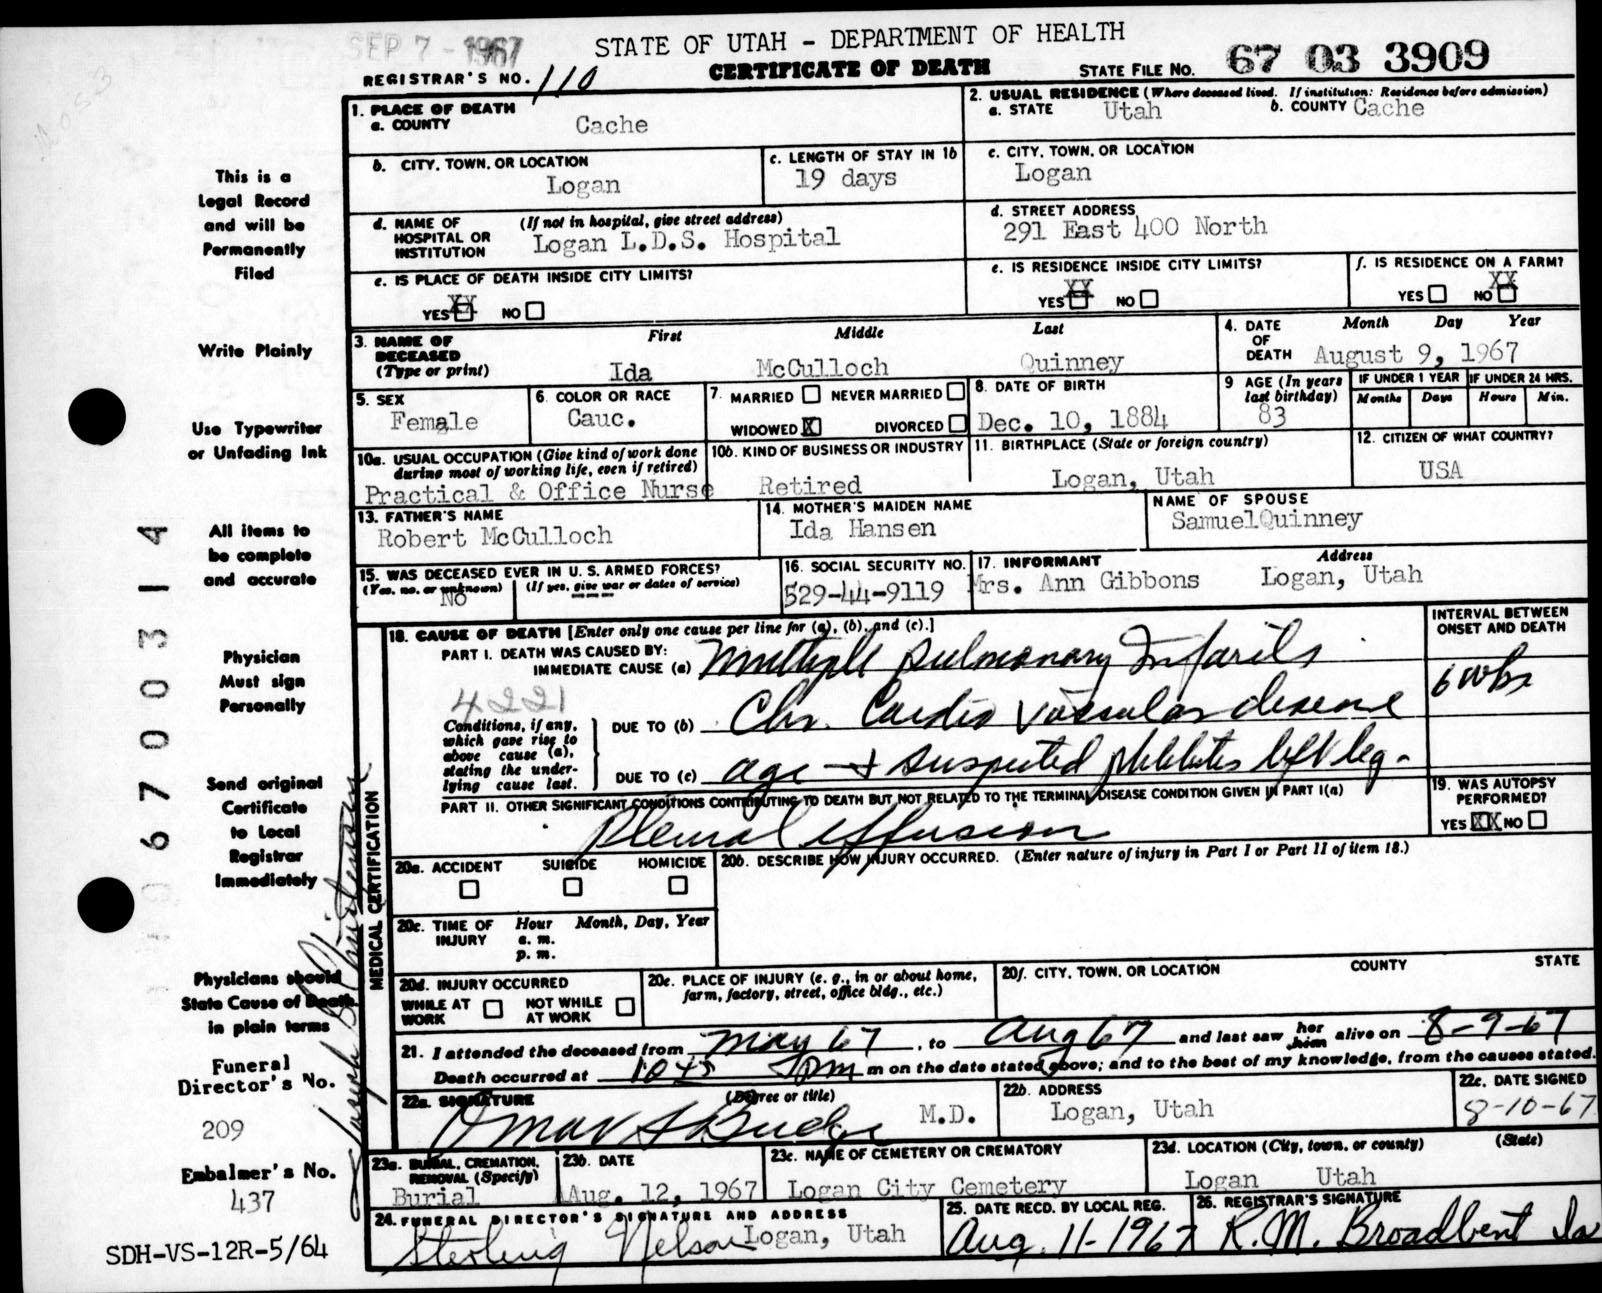 SEP 7 - 1967
STATE OF UTAH - DEPARTMENT OF HEALTH
CERTIFICATE OF DEATH
REGISTRAR'S NO. 110
STATE FILE NO. 67 03 3909
1. PLACE OF DEATH
a. COUNTY
Cache
2. USUAL RESIDENCE (Where deceased lived. If institution: Residence before admission)
a. STATE Utah b. COUNTY Cache
b. CITY, TOWN, OR LOCATION
Logan
c. LENGTH OF STAY IN 1b
19 days
c. CITY, TOWN, OR LOCATION
Logan
d. NAME OF HOSPITAL OR INSTITUTION (If not in hospital, give street address)
Logan L.D.S. Hospital
d. STREET ADDRESS
291 East 400 North
e. IS PLACE OF DEATH INSIDE CITY LIMITS?
YES XX NO
e. IS RESIDENCE INSIDE CITY LIMITS?
YES XX NO
f. IS RESIDENCE ON A FARM?
YES NO XX
3. NAME OF DECEASED (Type or print)
First Middle Last
Ida McCulloch Quinney
4. DATE OF DEATH Month Day Year
August 9, 1967
5. SEX
Female
6. COLOR OR RACE
Cauc.
7. MARRIED NEVER MARRIED
WIDOWED X DIVORCED
8. DATE OF BIRTH
Dec. 10, 1884
9 AGE (In years last birthday)
83
IF UNDER 1 YEAR
Months Days
IF UNDER 24 HRS.
Hours Min.
10a. USUAL OCCUPATION (Give kind of work done during most of working life, even if retired)
Practical & Office Nurse
10b. KIND OF BUSINESS OR INDUSTRY
Retired
11. BIRTHPLACE (State or foreign country)
Logan, Utah
12. CITIZEN OF WHAT COUNTRY?
USA
13. FATHER'S NAME
Robert McCulloch
14. MOTHER'S MAIDEN NAME
Ida Hansen
NAME OF SPOUSE
SamuelQuinney
15. WAS DECEASED EVER IN U.S. ARMED FORCES?
(Yes, no, or unknown) (If yes, give war or dates of service)
No ---
16. SOCIAL SECURITY NO.
529-44-9119
17. INFORMANT Address
Mrs. Ann Gibbons Logan, Utah
MEDICAL CERTIFICATION
18. CAUSE OF DEATH [Enter only one cause per line for (a), (b), and (c).]
INTERVAL BETWEEN ONSET AND DEATH
PART I. DEATH WAS CAUSED BY:
IMMEDIATE CAUSE (a) Multiple pulmonary Infarcts
6 wks
4221
Conditions, if any, which gave rise to above cause (a), stating the underlying cause last.
DUE TO (b) Chr. Cardio Vascular disease
DUE TO (c) age + suspected phlebitis left leg.
PART II. OTHER SIGNIFICANT CONDITIONS CONTRIBUTING TO DEATH BUT NOT RELATED TO THE TERMINAL DISEASE CONDITION GIVEN IN PART I(a)
Pleural effusion
19. WAS AUTOPSY PERFORMED?
YES XX NO
20a. ACCIDENT SUICIDE HOMICIDE
20b. DESCRIBE HOW INJURY OCCURRED. (Enter nature of injury in Part I or Part II of item 18.)
20c. TIME OF INJURY Hour Month, Day, Year
a. m.
p. m.
20d. INJURY OCCURRED
WHILE AT WORK NOT WHILE AT WORK
20e. PLACE OF INJURY (e. g., in or about home, farm, factory, street, office bldg., etc.)
20f. CITY, TOWN, OR LOCATION COUNTY STATE
21. I attended the deceased from May 67, to Aug 67 and last saw her him alive on 8-9-67
Death occurred at 1045 pm m on the date stated above; and to the best of my knowledge, from the causes stated.
22a. SIGNATURE (Degree or title)
Omar S Budge M.D.
22b. ADDRESS
Logan, Utah
22c. DATE SIGNED
8-10-67
23a. BURIAL, CREMATION, REMOVAL (Specify)
Burial
23b. DATE
Aug. 12, 1967
23c. NAME OF CEMETERY OR CREMATORY
Logan City Cemetery
23d. LOCATION (City, town, or county) (State)
Logan Utah
24. FUNERAL DIRECTOR'S SIGNATURE AND ADDRESS
Sterling Nelson Logan, Utah
25. DATE RECD. BY LOCAL REG.
Aug. 11-1967
26. REGISTRAR'S SIGNATURE
R. M. Broadbent
This is a
Legal Record
and will be
Permanently
Filed
Write Plainly
Use Typewriter
or Unfading Ink
All items to
be complete
and accurate
Physician
Must sign
Personally
Send original
Certificate
to Local
Registrar
Immediately
Physicians should
State Cause of Death
in plain terms
Funeral
Director's No.
209
Embalmer's No.
437
SDH-VS-12R-5/64
0 6 7 0 0 3 1 4